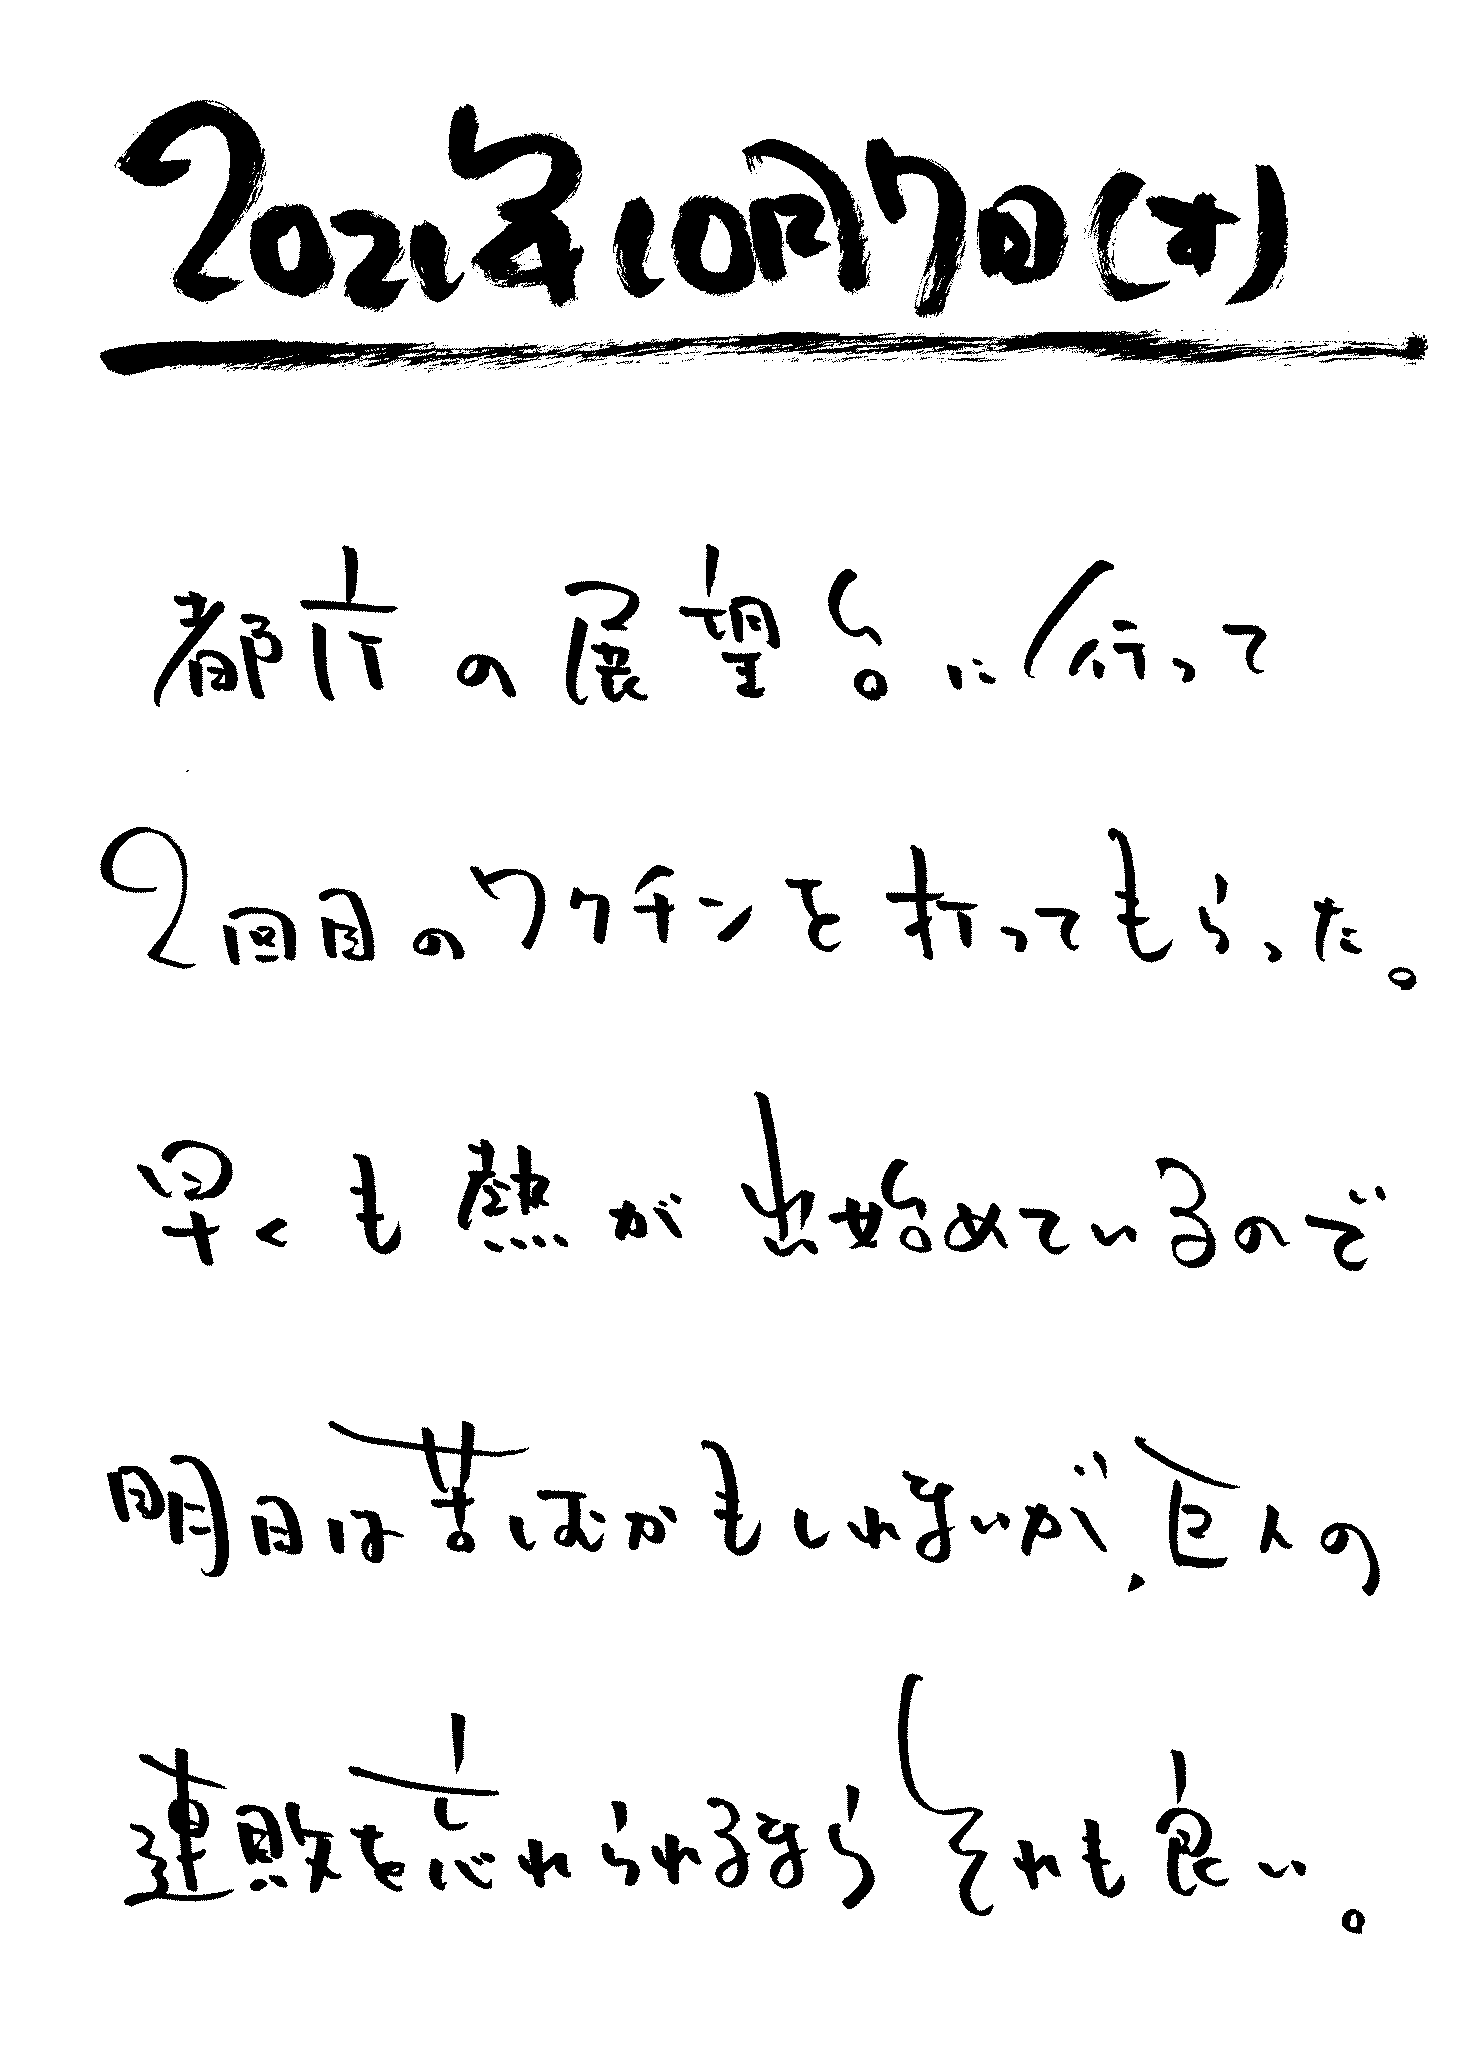 2021年10月7日(木)
都庁の展望台に行って
2回目のワクチンを打ってもらった。
早くも熱が出始めているので
明日は苦しむかもしれないが、巨人の
連敗を忘れられるならそれも良い。